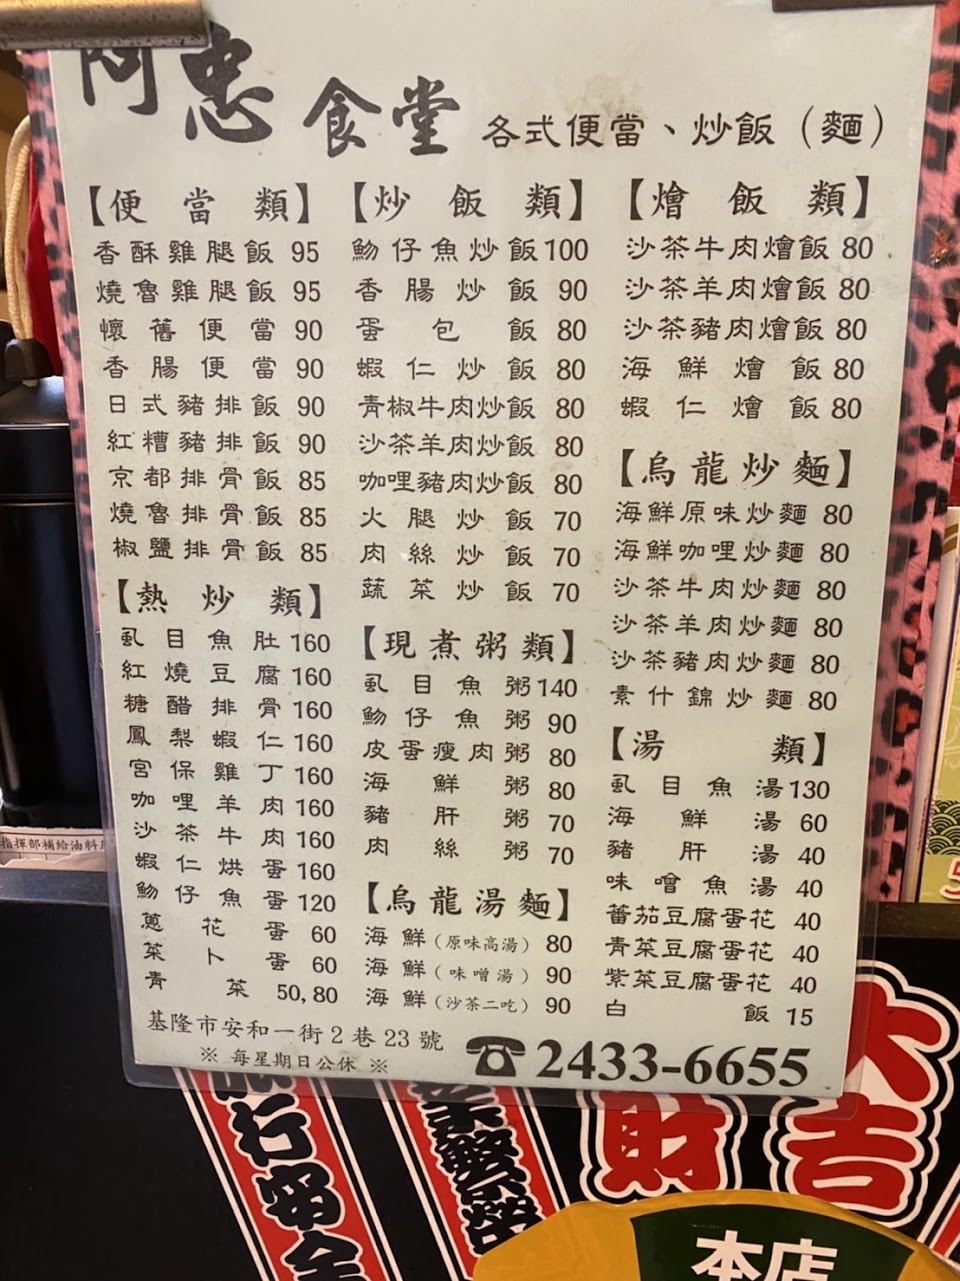 阿忠食堂 各式便當、炒飯（麵）
【便當類】
香酥雞腿飯 95
燒魯雞腿飯 95
懷舊便當 90
香腸便當 90
日式豬排飯 90
紅糟豬排飯 90
京都排骨飯 85
燒魯排骨飯 85
椒鹽排骨飯 85
【熱炒類】
虱目魚肚 160
紅燒豆腐 160
糖醋排骨 160
鳳梨蝦仁 160
宮保雞丁 160
咖哩羊肉 160
沙茶牛肉 160
蝦仁烘蛋 160
魩仔魚蛋 120
蔥花蛋 60
菜卜蛋 60
青菜 50,80
【炒飯類】
魩仔魚炒飯 100
香腸炒飯 90
蛋包飯 80
蝦仁炒飯 80
青椒牛肉炒飯 80
沙茶羊肉炒飯 80
咖哩豬肉炒飯 80
火腿炒飯 70
肉絲炒飯 70
蔬菜炒飯 70
【現煮粥類】
虱目魚粥 140
魩仔魚粥 90
皮蛋瘦肉粥 80
海鮮粥 80
豬肝粥 70
肉絲粥 70
【烏龍湯麵】
海鮮（原味高湯） 80
海鮮（味噌湯） 90
海鮮（沙茶二吃） 90
【燴飯類】
沙茶牛肉燴飯 80
沙茶羊肉燴飯 80
沙茶豬肉燴飯 80
海鮮燴飯 80
蝦仁燴飯 80
【烏龍炒麵】
海鮮原味炒麵 80
海鮮咖哩炒麵 80
沙茶牛肉炒麵 80
沙茶羊肉炒麵 80
沙茶豬肉炒麵 80
素什錦炒麵 80
【湯類】
虱目魚湯 130
海鮮湯 60
豬肝湯 40
味噌魚湯 40
蕃茄豆腐蛋花 40
青菜豆腐蛋花 40
紫菜豆腐蛋花 40
白飯 15
基隆市安和一街2巷23號
※ 每星期日公休 ※
☎2433-6655
指揮部補給油料
大吉
財
本店